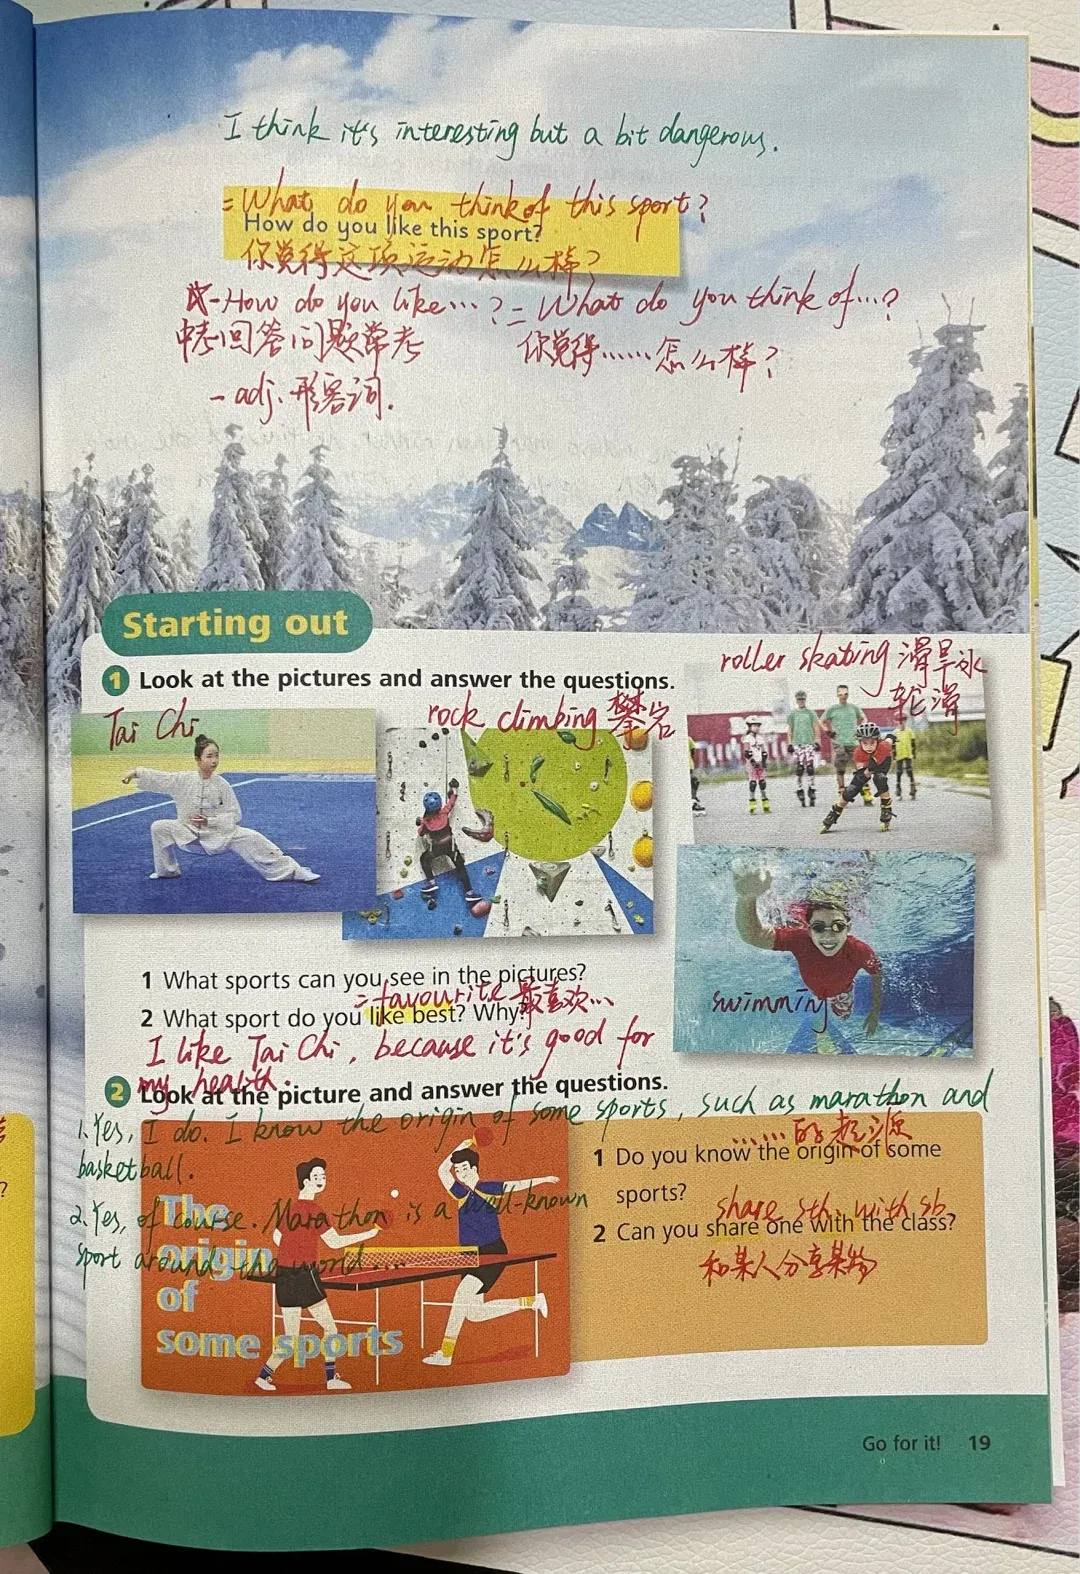 I think it's interesting but a bit dangerous.
=What do you think of this sport?
How do you like this sport?
你觉得这项运动怎么样?
-How do you like…? = What do you think of…?
中考回答问题常考 你觉得……怎么样?
- adj. 形容词.
Starting out
1 Look at the pictures and answer the questions.
roller skating 滑旱冰
轮滑
Tai Chi
rock climbing 攀岩
swimming
1 What sports can you see in the pictures?
=favourite 最喜欢…
2 What sport do you like best? Why?
I like Tai Chi, because it's good for
my health.
2 Look at the picture and answer the questions.
1.Yes, I do. I know the origin of some sports, such as marathon and
basketball.
2.Yes, of course. Marathon is a well-known
sport around the world...
The
origin
of
some sports
……的起源
1 Do you know the origin of some
sports?
share sth. with sb
2 Can you share one with the class?
和某人分享某物
Go for it! 19